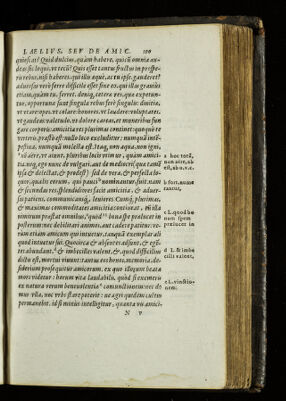 LAELIVS, SEV DE AMIC. 100
quiescat? Quid dulcius, quàm habere, quicũ omnia au-
deas sic loqui, vt tecũ? Quis esset tantus fructus in prospe-
ris rebus, nisi haberes, qui illis æquè, ac tu ipse, gauderet?
aduersas verò ferre difficile esset sine eo, qui illas grauius
etiam, quàm tu, ferret. denique ceteræ res, quæ expetun-
tur, opportunæ sunt singulæ rebus ferè singulis: diuitiæ,
vt vtare: opes, vt colare: honores, vt laudere: voluptates,
vt gaudeas: valetudo, vt dolore careas, et muneribus fun
gare corporis. amicitia res plurimas continet: quoquò te
verteris, præstò est: nullo loco excluditur: numquã intẽ-
pestiua, numquã molesta est. itaq; non aqua, non igni,
vt aere, vt aiunt, pluribus locis vtimur, quàm amici-
tia. neq; ego nunc de vulgari, aut de mediocri (quæ tamẽ
ipsa & delectat, & prodest) sed de vera, & perfecta lo-
quor, qualis eorum, qui pauci nominantur, fuit. nam
& secundas res splendidiores facit amicitia, & aduer-
sas partiens, communicansq́, leuiores. Cumq́; plurimas,
& maximas commoditates amicitia contineat, tũ illa
nimirum præstat omnibus, quòd bona spe prælucet in
posterum: nec debilitari animos, aut cadere patitur: ve-
rum etiam amicum qui intuetur, tamquã exemplar ali
quod intuetur sui. Quocirca & absentes adsunt, & egẽ-
tes abundant, & imbecilles valent, &, quod difficilius
dictu est, mortui viuunt: tantus eos honos, memoria, de-
siderium prosequitur amicorum. ex quo illorum beata
mors videtur: horum vita laudabilis. quòd si exemeris
ex natura rerum beneuolentiæ coniunctionem: nec do
mus vlla, nec vrbs stare poterit: ne agri quidem cultus
permanebit. id si minus intelligitur, quanta vis amici-
N v
a hoc totũ,
b fort. nume
rantur,
c L. quod bo
nam spem
prælucet in
d L. & imbe
cilli valent,
e L. vinctio-
nem: